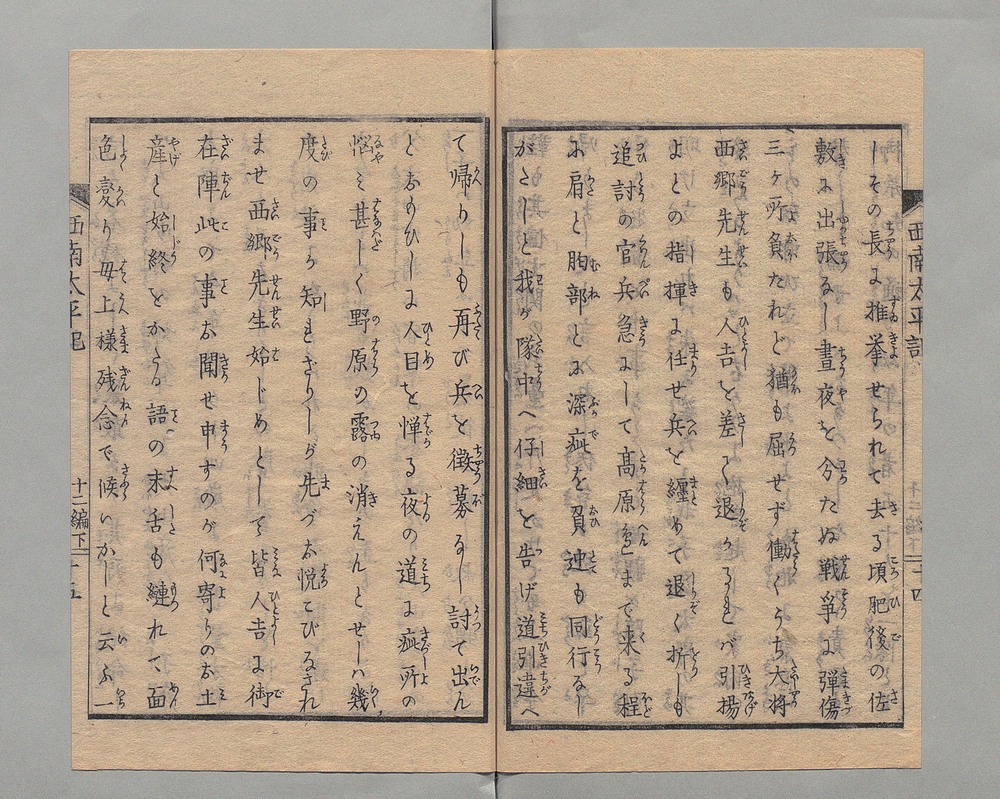 西南太平記
十二編下
十四
しその長に推挙せられて去る頃肥後の佐
敷に出張なし昼夜を分たぬ戦争に弾傷
三ヶ所負たれど猶も屈せず働くうち大将
西郷先生も人吉を差して退かるれバ引揚
よとの指揮に任せ兵を纏めて退く折しも
追討の官兵急にして高原邉まで来る程
に肩と胸部とに深疵を負迚も同行なし
がたしと我が隊中へ仔細を告げ道引違へ
て帰りしも再び兵を徴募なし討て出ん
とおもひしに人目を憚る夜の道に疵所の
悩ミ甚しく野原の露の消えんとせしハ幾
度の事か知れざりしが先づお悦こびなされ
ませ西郷先生始じめとして皆人吉に御
在陣此の事お聞せ申すのが何寄りのお土
産と始終をかたる語の末舌も縺れて面
色変り母上様残念で候いかしと云ふ一
西南太平記
十二編下
十五